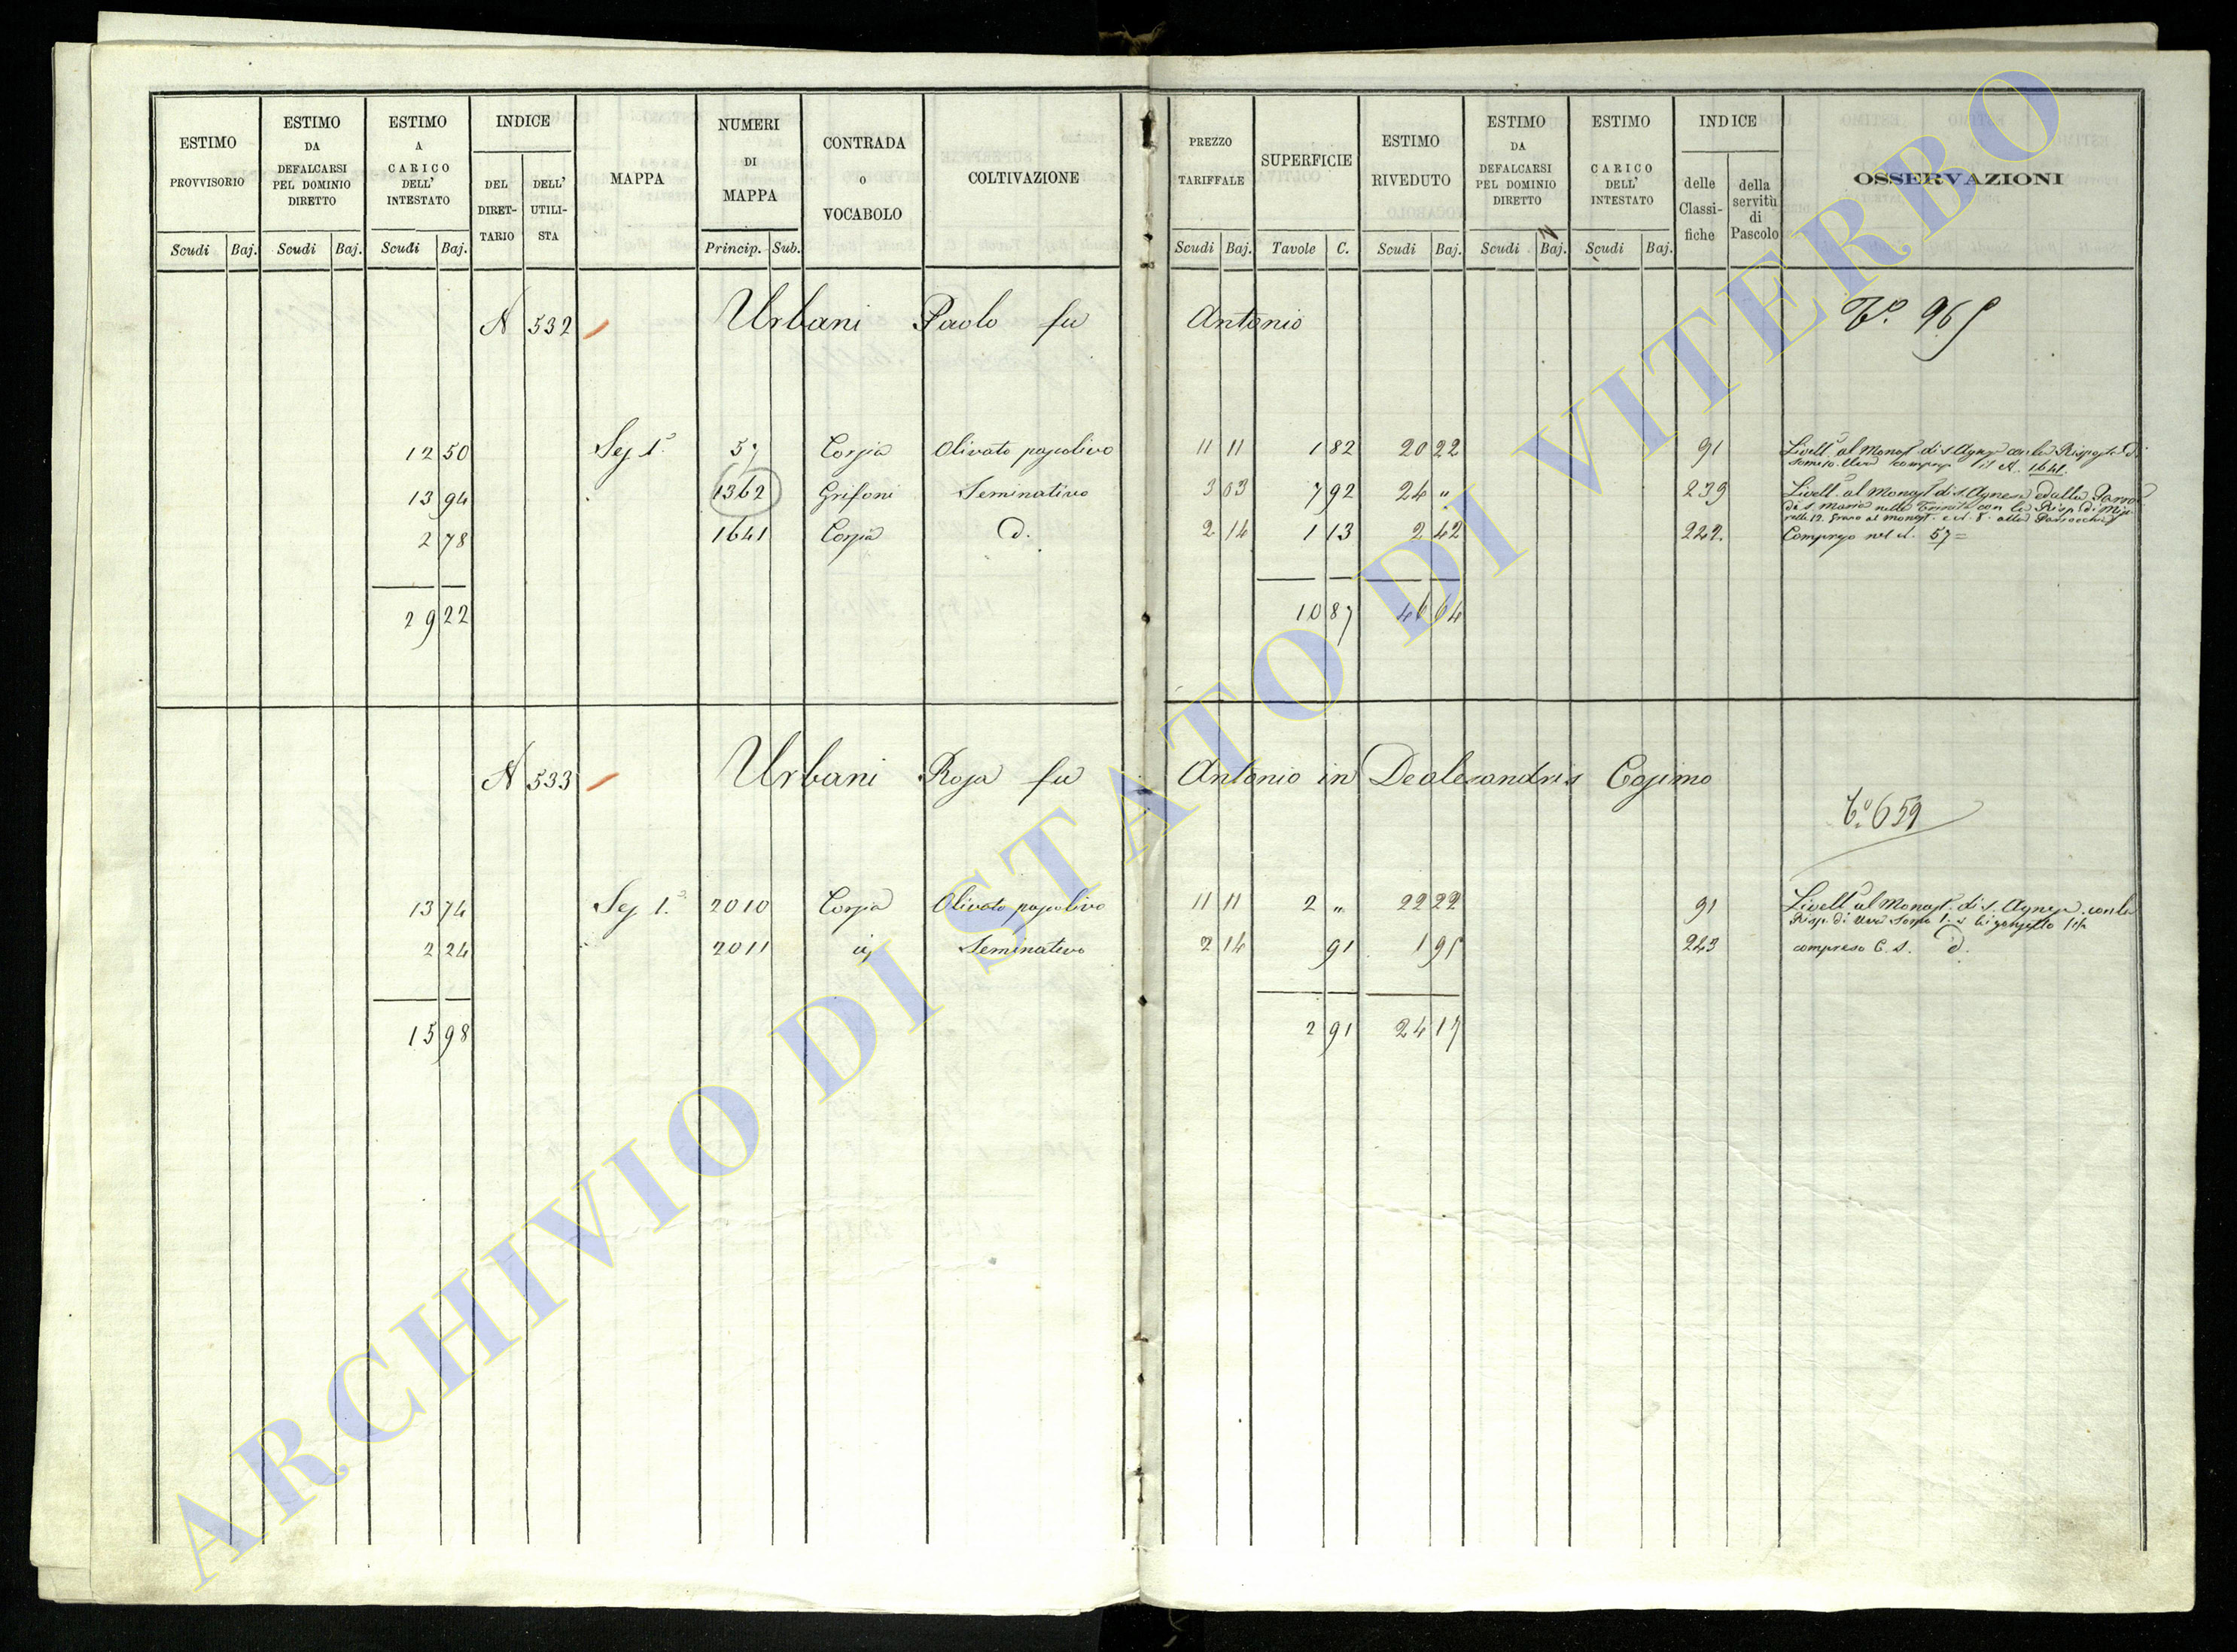 ESTIMO PROVVISORIO
ESTIMO DA DEFALCARSI PEL DOMINIO DIRETTO
ESTIMO A CARICO DELL' INTESTATO
INDICE
DEL DIRET- TARIO
DELL' UTILI- STA
MAPPA
NUMERI DI MAPPA
CONTRADA O VOCABOLO
COLTIVAZIONE
PREZZO TARIFFALE
SUPERFICIE
ESTIMO RIVEDUTO
ESTIMO DA DEFALCARSI PEL DOMINIO DIRETTO
ESTIMO CARICO DELL' INTESTATO
INDICE
delle Classi- fiche
della servitù di Pascolo
OSSERVAZIONI
Scudi Baj. Scudi Baj. Scudi Baj. Princip. Sub. Scudi Baj. Tavole C. Scudi Baj. Scudi Baj. Scudi Baj.
N 532 Urbani Paolo fu Antonio
12 50 Sez 1ª 57 Corpia Olivato papolivo 11 11 1 82 20 22 91 Livell. al Monast. di S. Agnese con la
1641
13 94 1362 Grifoni Seminativo 3 03 7 92 24 " 239 Livell. al Monast. di S. Agnese
di S. Maria nella Trinità con la Risp. di
2 78 1641 Corpia d. 2 14 1 13 2 42 222. Compreso nel N. 57 =
29 22 10 87 46 64
N 533 Urbani Rosa fu Antonio in Dealesandris Cosimo
659
13 74 Sez 1.ª 2010 Corpia Olivato papolivo 11 11 2 " 22 22 91 Livell. al Monast. di S. Agnese con la
Risp. di
2 24 2011 Seminativo 2 14 91 1 95 243 compreso C. S. d.
15 98 2 91 24 17
ARCHIVIO DI STATO DI VITERBO